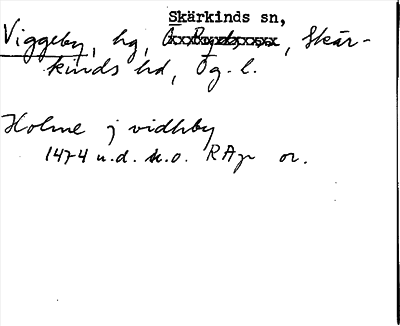 Skärkinds sn,
Viggeby, hg, , Skär-
kinds hd, Ög. l.
Holme j vidhby
1474 u.d. s.o. RAp or.